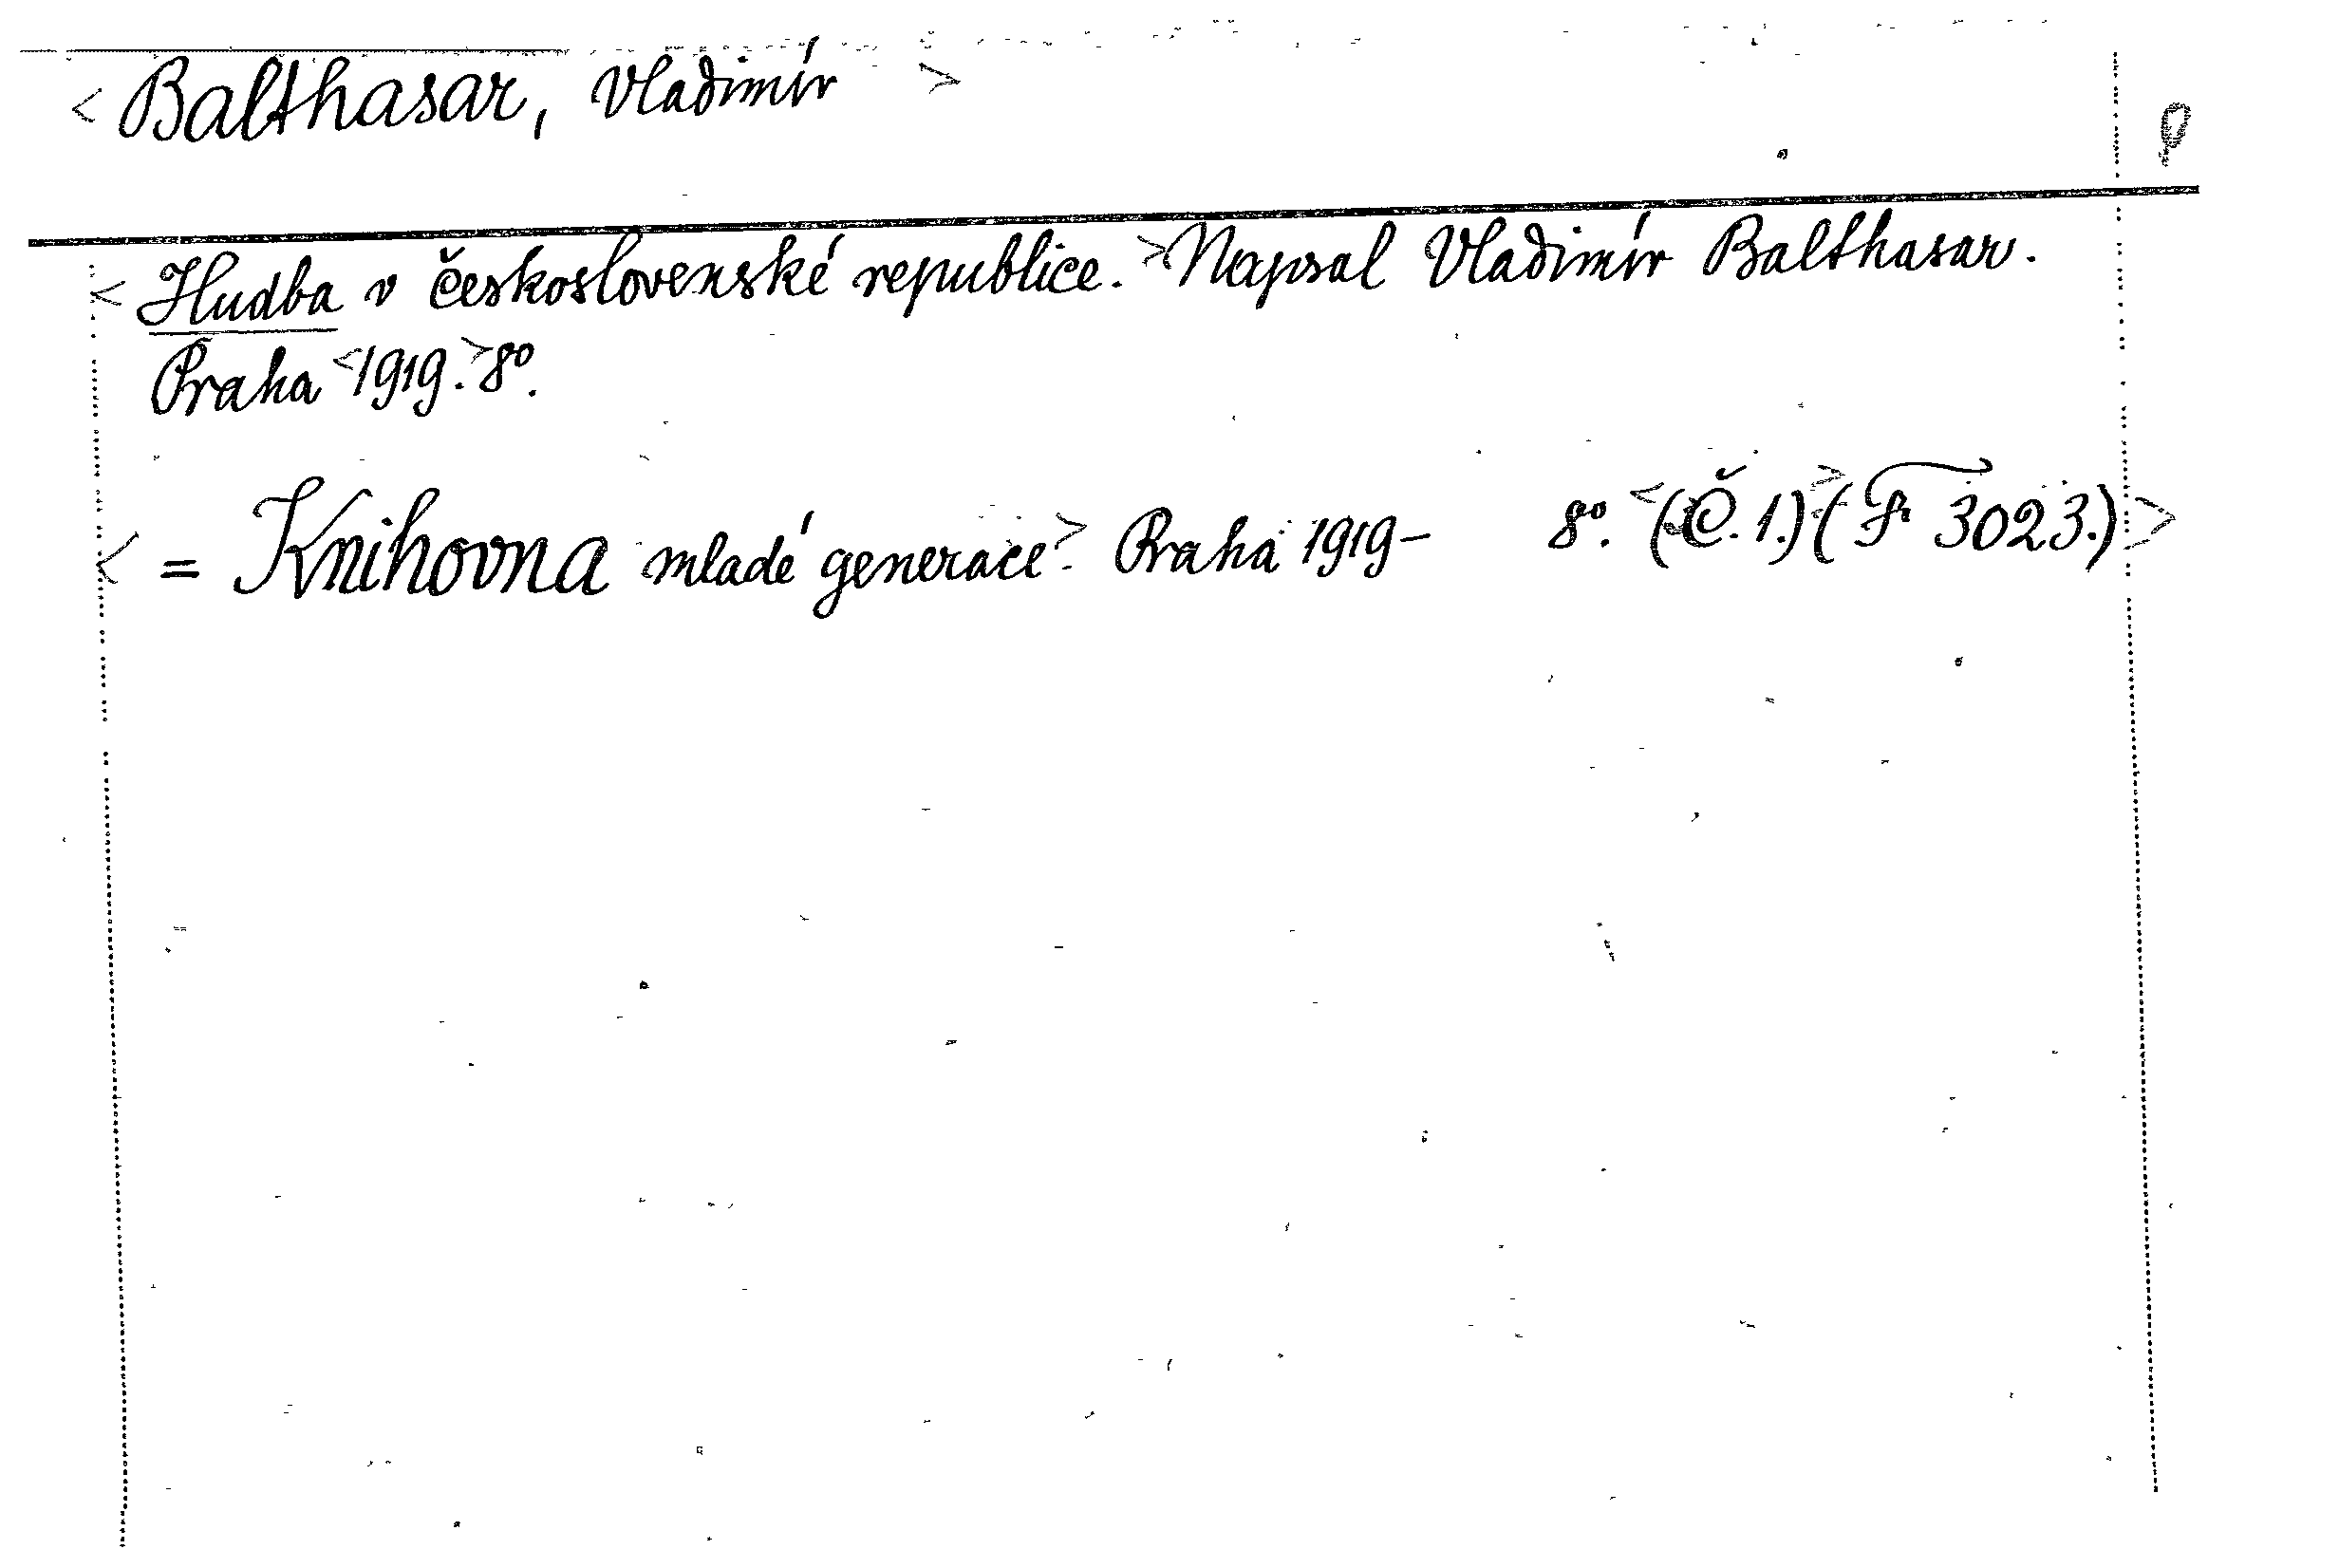 < Balthasar, Vladimír >
< Hudba v československé republice. > Napsal Vladimír Balthasar.
Praha < 1919. > 8°.
< = Knihovna mladé generace > . Praha 1919– 8°. < (Č. 1.) > (F 3023.) >